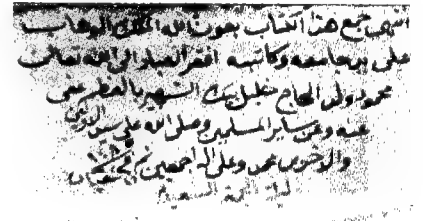 انتهى جمع هذا الكتاب بعون الله الملك الوهاب
على يد جامعه وكاتبه افقر العباد الى الله تعالى
محمود ولد الحاج خليل بيك الشهير بالفطر عفى
عنه وعن ساير المسلمين وصلى الله على سيد
محمد وعلى اله اجمعين تم في
ليلة الجمعة